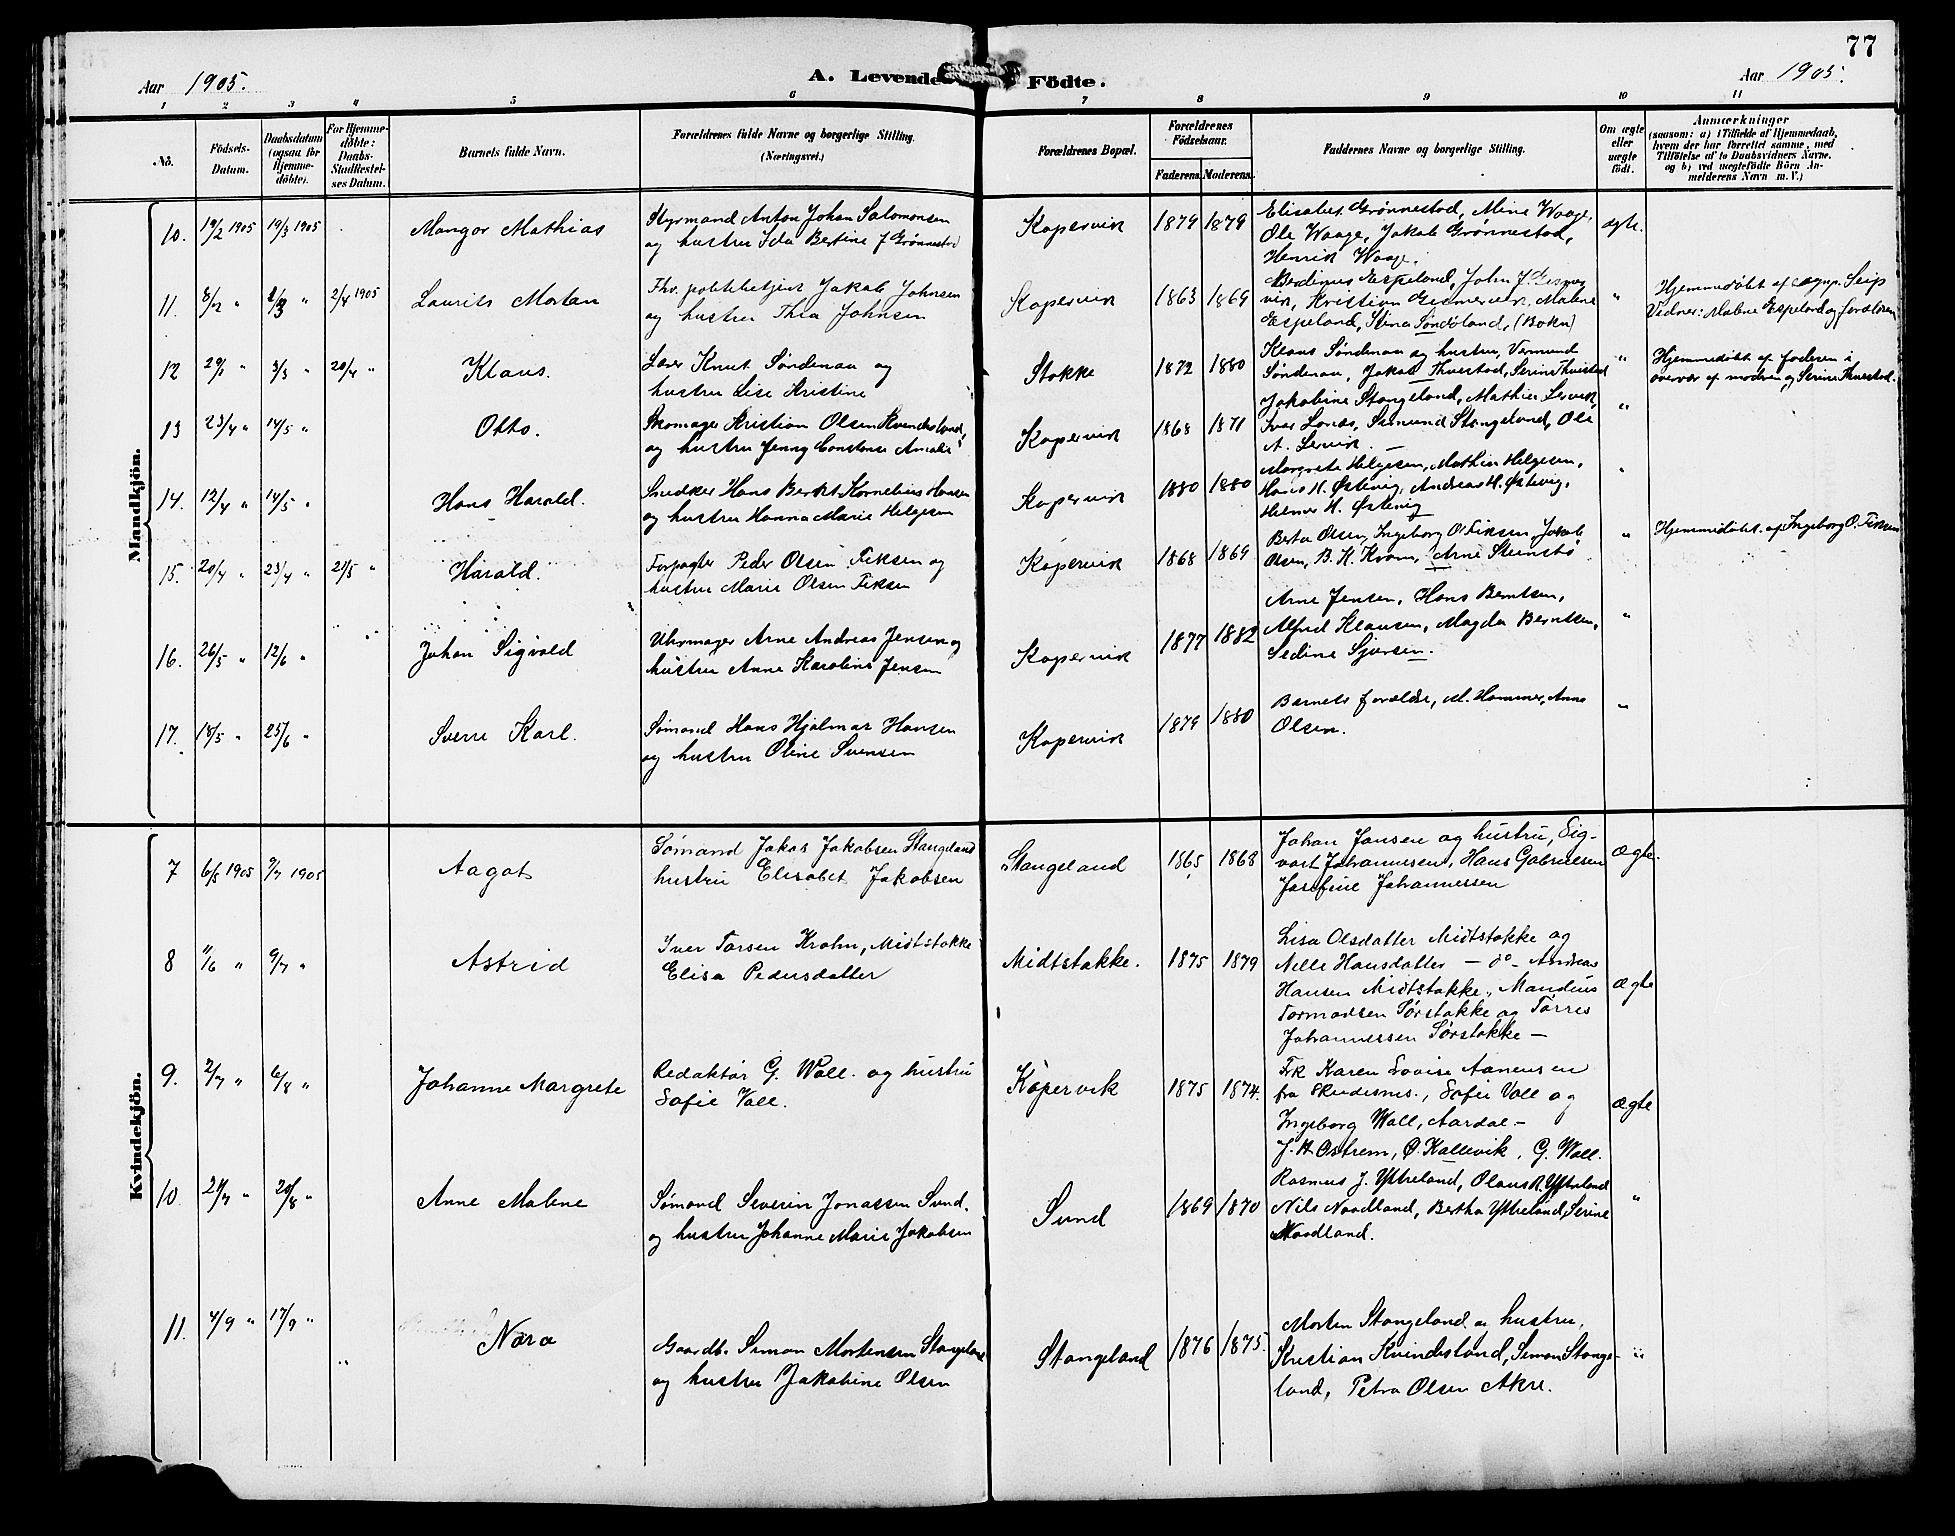 77
Aar 1905.
A. Levende Födte.
Aar 1905.
1 2 3 4 5 6 7 8 9 10 11
No.
Födsels-Datum.
Daabsdatum (ogsaa for Hjemme-döbte).
For Hjemme-döbte: Daabs-Stadfæstel-ses Datum.
Barnets fulde Navn.
Forældrenes fulde Navne og borgerlige Stilling. (Næringsvei.)
Forældrenes Bopæl.
Forældrenes Födselsaar.
Faderens. Moderens.
Faddernes Navne og borgerlige Stilling.
Om ægte eller uægte födt.
Anmærkninger
(saasom: a) i Tilfælde af Hjemmedaab, hvem der har forrettet samme, med Tilföielse af to Daabsvidners Navne, og b) ved uægtefödte Börn An-melderens Navn m. V.)
Mandkjön.
10. 19/2 1905 19/3 1905 Mangor Mathias
Styrmand Anton Johan Salomonsen
og hustru Ida Bertine J Grønnestad
Kopervik 1879 1879
Elisabet Grønnestad, Mina Waage,
Ole Waage, Jakob Grønnestad,
Henrik Waage.
ægte.
11. 8/2 " " 2/4 1905 Laurits Mortan
Fhv. politibetjent Jakob Johnsen
og hustru Thea Johnsen
Kopervik 1863 1869 "
Espeland, Stina Søndøland, (Bokn)
Hjemmedøbt af Seip
Vidner: Malene Espeland og forældrene
12 29/1 " 3/3 " 20/4 " Klaus.
Laver Knut Søndenaa og
hustru Lise Kristine
Stokke 1872 1880
Klaus Søndenaa og hustru, Vermund
Søndenaa, Jakob Thuestad, Serina Thuestad
"
Hjemmedøbt af faderen i
overvær af modren og Serina Thuestad.
13 23/4 " 14/5 " Otto.
Skomager Kristian Olsen Kvindesland,
og hustru Jenny Constanse Amalie
Kopervik 1868 1871
Jakobine Stangeland, Mathias Lervik,
Iver Lonas, Simund Stangeland, Ole
A. Lervik. —
"
14. 12/4 " 14/5 " Hans Harald.
Snedker Hans Berket Kornelius Hansen
og hustru Hanna Marie Helgesen
Kopervik 1880 1880
Margrete Helgesen, Mathias Helgesen,
Hans H. Østevig, Andreas H. Østevig,
Helmer H. Østevig
"
15. 20/4 " 23/4 " 21/5 " Harald.
Forpagter Peder Olsen Feksen og
hustru Marie Olsen Feksen
Kopervik 1868 1869
Berta Olsen, Ingeborg O Feksen, Jakob
Olsen, B. K. Kvam, Arne Steinstø
"
Hjemmedøbt af Ingeborg O. Feksen
16. 26/5 " 12/6 " Johan Sigvald
Uhrmager Arne Andreas Jensen og
hustru Anne Karoline Jensen
Kopervik 1877 1882
Arne Jensen, Hans Berntsen,
Alfred Klausen, Magda Berntsen,
Sedine Sjursen.
"
17. 18/5 " 25/6 " Sverre Karl.
Sømand Hans Hjalmar Hansen
og hustru Oline Svensen
Kopervik 1879 1880
Barnets forældre, M. Hammer, Anna
Olsen.
"
Kvindekjön.
7 6/5 1905 2/7 1905 Aagot
Sømand Jakob Jakobsen Stangeland
hustru Elisabet Jakobsen
Stangeland 1865 1868
Johan Jansen og hustru, Sig-
vart Johannesen, Hans Gabrielsen
Josefine Johannessen
Ægte.
8 11/6 " 9/7 " Astrid
Iver Torsen Krohn, Midtstokke
Elisa Pedersdatter
Midtstokke. 1875 1879
Lisa Olsdatter Midtstokke og
Nelle Hansdatter — do — Andreas
Hansen Midtstokke, Mandius
Tormodsen Sørstokke og Torres
Johannessen Sørstokke —
Ægte
9. 2/7 " 6/8 " Johanne Margrete
Redaktør G. Wall. og hustru
Sofie Vall.
Kopervik 1875 1874.
Frk Karen Lovise Aanensen
fra Skudesnes., Sofie Vall og
Ingeborg Wall, Aardal —
J. H Østrem, Ø. Kallevik, G. Wall.
Ægte
10. 21/7 " 20/8 " Anne Malene
Sømand Severin Jonassen Sund.
og hustru Johanne Marie Jakobsen
Sund 1869 1870
Rasmus J. Yttreland, Olaus R. Yttreland
Nils Noodland, Bertha Yttreland, Serine
Noodland.
"
11. 4/9 " 17/9 " Nora
Gaardb. Simon Mortensen Stangeland
og hustru Jakobine Olsen
Stangeland 1876 1875.
Morten Stangeland og hustru,
Kristian Kvindesland, Simon Stange-
land, Petra Olsen Akre.
"